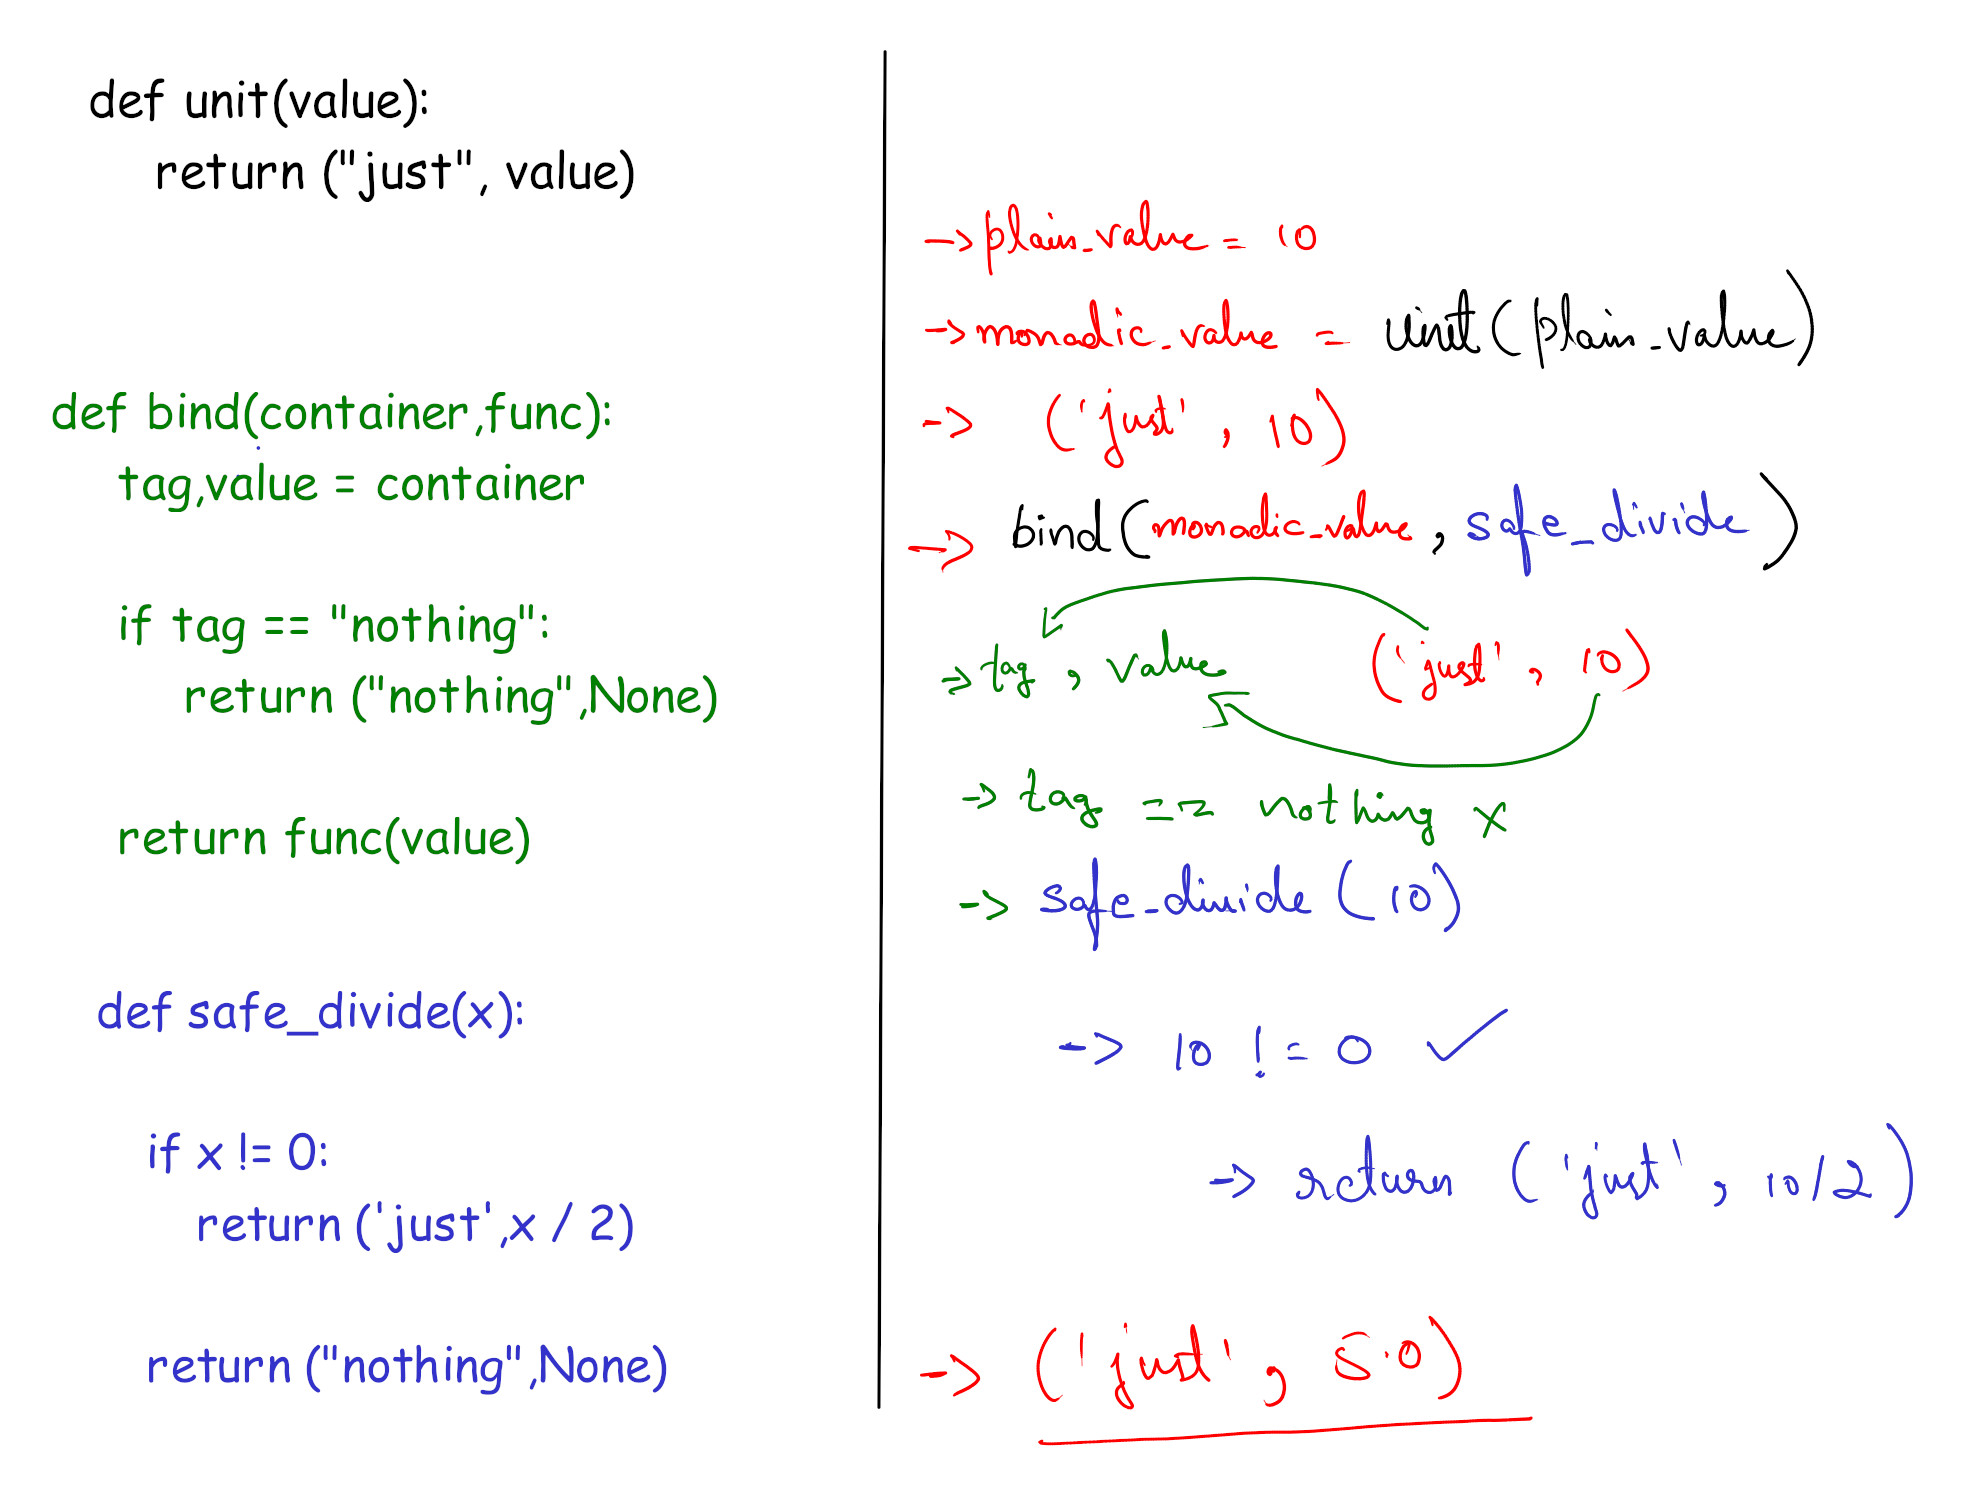 def unit(value):
return ("just", value)
def bind(container,func):
tag,value = container
if tag == "nothing":
return ("nothing",None)
return func(value)
def safe_divide(x):
if x != 0:
return ('just',x / 2)
return ("nothing",None)
-> plain_value = 10
-> monadic_value = unit(plain_value)
-> ('just', 10)
-> bind(monadic_value, safe_divide)
-> tag, value ('just', 10)
-> tag == nothing x
-> safe_divide(10)
-> 10 != 0 ✓
-> return ('just', 10/2)
-> ('just', 5.0)